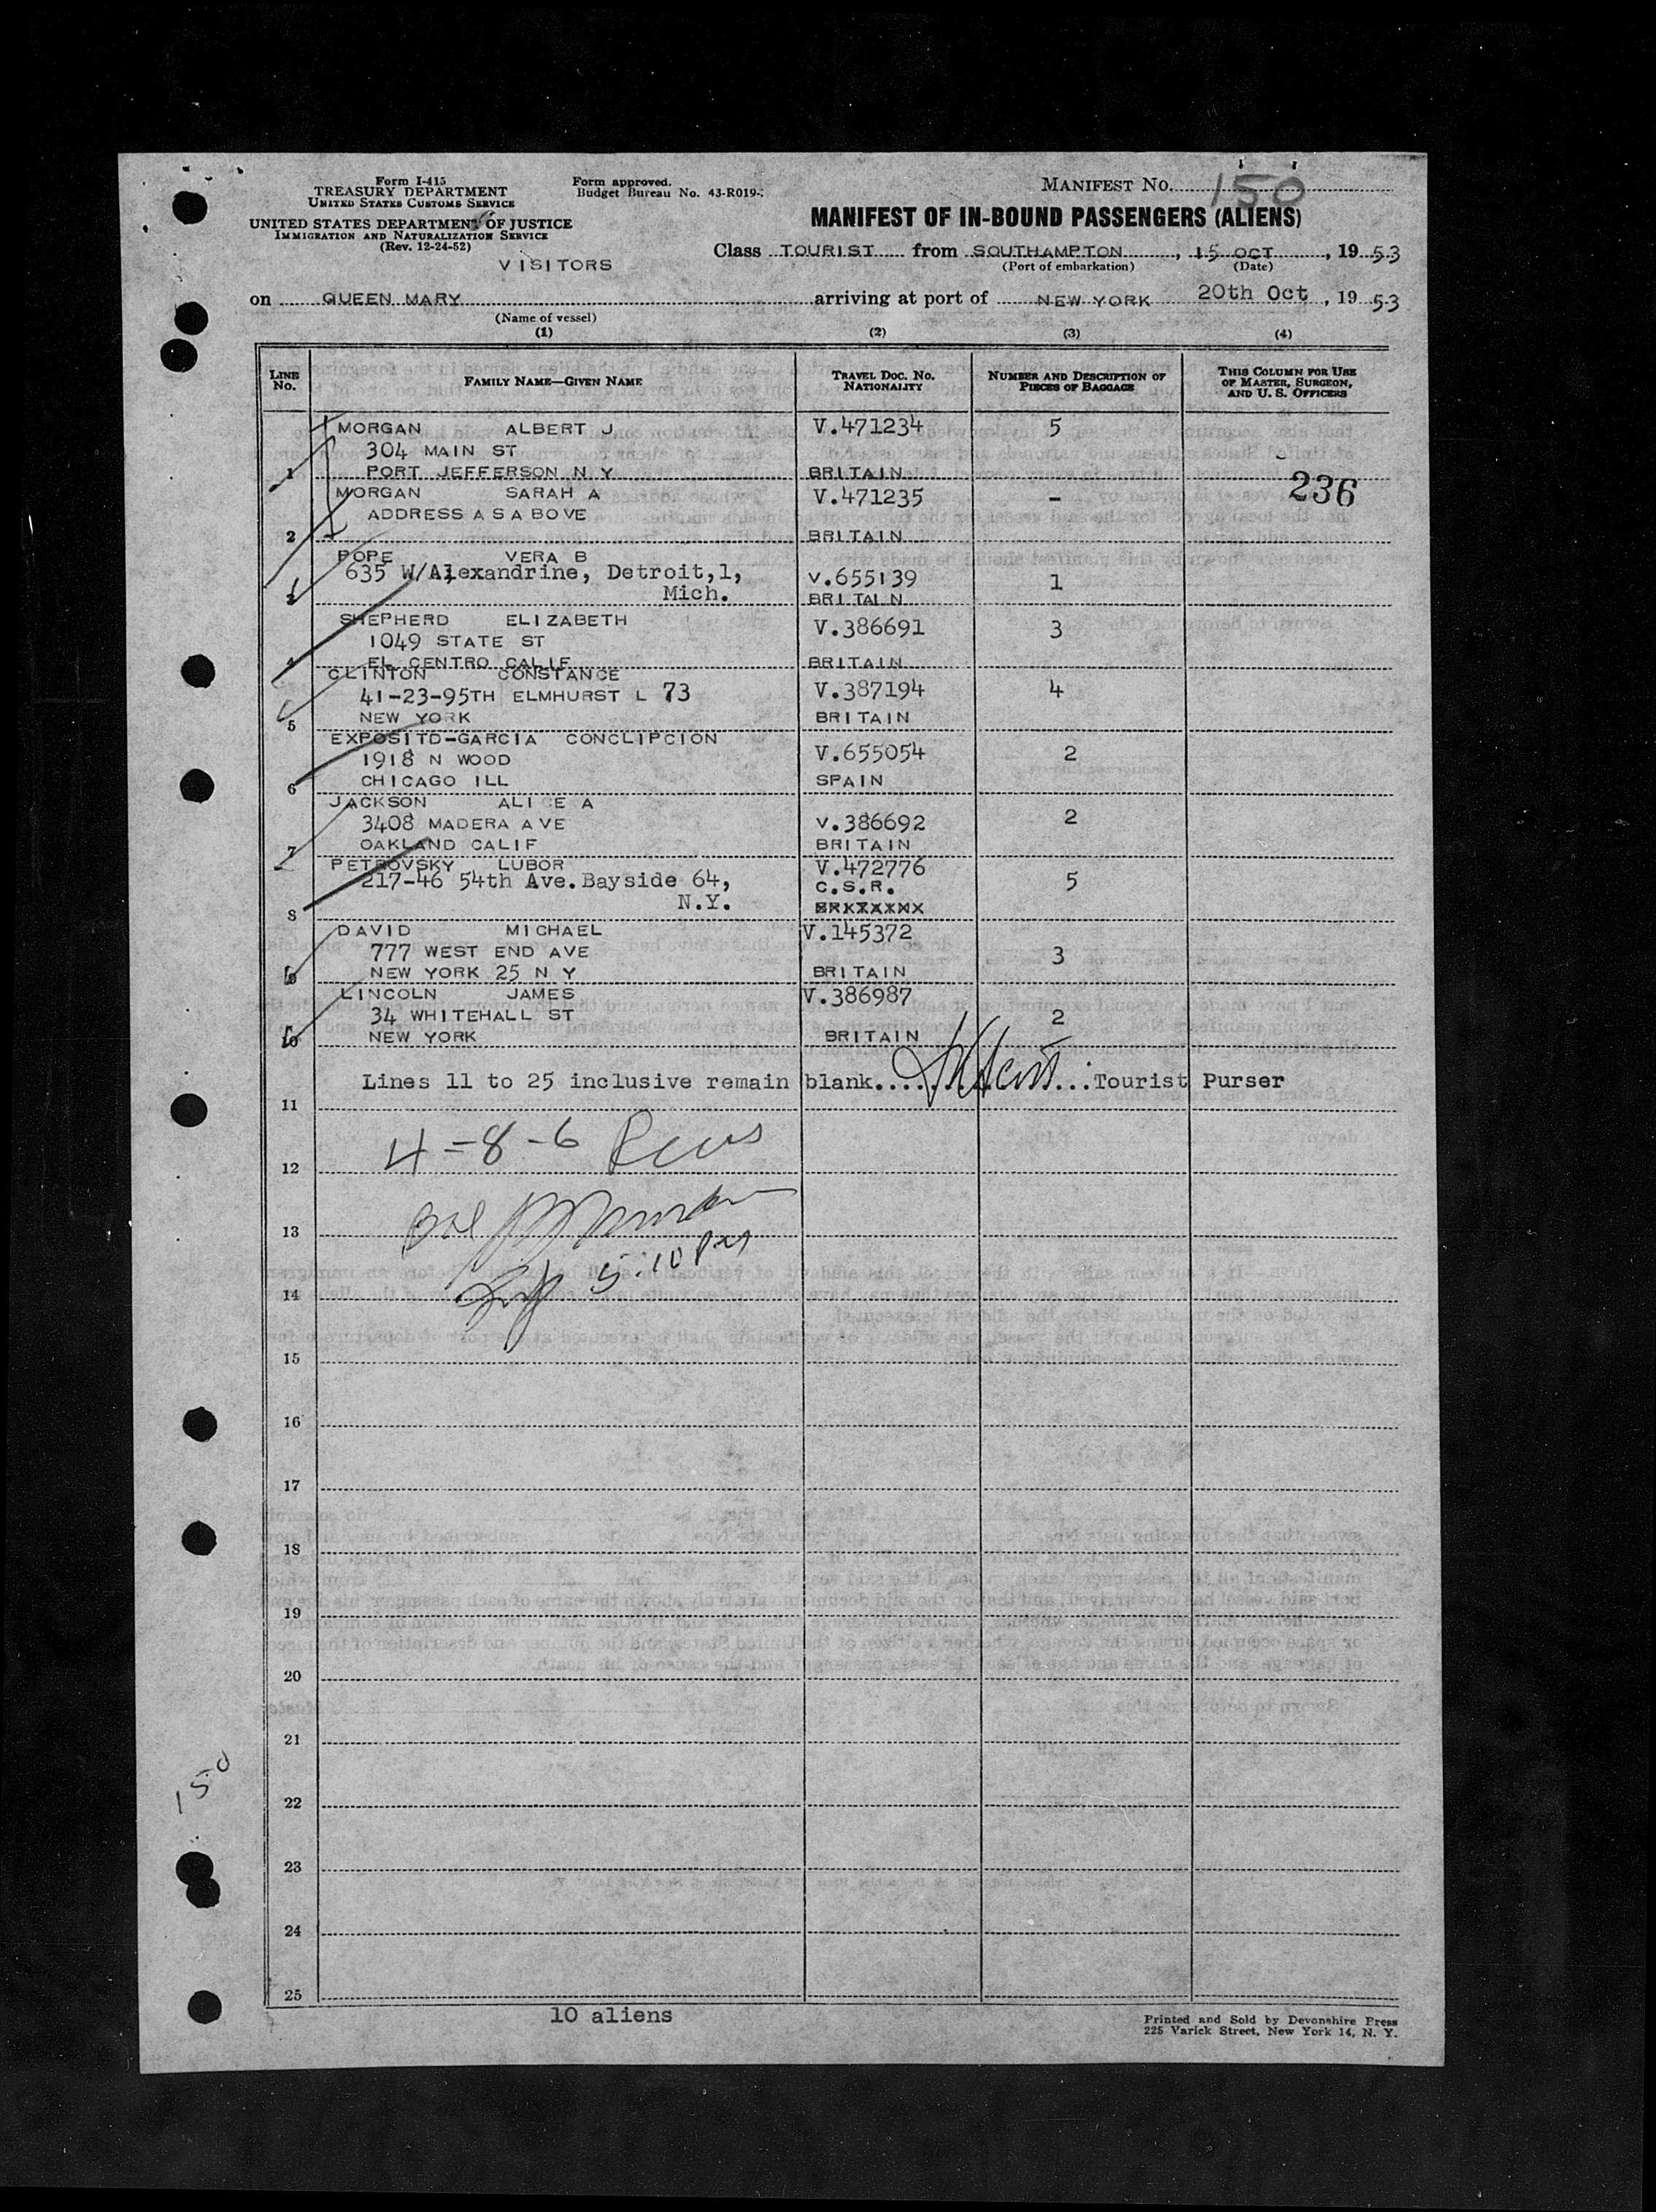 Form I-415
TREASURY DEPARTMENT
UNITED STATES CUSTOMS SERVICE
UNITED STATES DEPARTMENT OF JUSTICE
IMMIGRATION AND NATURALIZATION SERVICE
(Rev. 12-24-52)
Form approved.
Budget Bureau No. 43-R019-
MANIFEST No. 150
MANIFEST OF IN-BOUND PASSENGERS (ALIENS)
VISITORS
Class TOURIST from SOUTHAMPTON, 15 OCT, 19 53
(Port of embarkation) (Date)
on QUEEN MARY arriving at port of NEW YORK 20th Oct, 19 53
(Name of vessel)
(1) (2) (3) (4)
LINE No. FAMILY NAME—GIVEN NAME TRAVEL DOC. NO. NATIONALITY NUMBER AND DESCRIPTION OF PIECES OF BAGGAGE THIS COLUMN FOR USE OF MASTER, SURGEON, AND U. S. OFFICERS
MORGAN ALBERT J V.471234 5
304 MAIN ST
1 PORT JEFFERSON N Y BRITAIN
236
MORGAN SARAH A V.471235 -
ADDRESS A S A BOVE
2 BRITAIN
POPE VERA B
635 W/Alexandrine, Detroit,1, V.655139 1
3 Mich. BRITAIN
SHEPHERD ELIZABETH V.386691 3
1049 STATE ST
4 EL CENTRO CALIF BRITAIN
CLINTON CONSTANCE
41-23-95TH ELMHURST L 73 V.387194 4
5 NEW YORK BRITAIN
EXPOSITD-GARCIA CONCLIPCION
1918 N WOOD V.655054 2
6 CHICAGO ILL SPAIN
JACKSON ALICE A
3408 MADERA AVE V.386692 2
7 OAKLAND CALIF BRITAIN
PETROVSKY LUBOR V.472776
217-46 54th Ave.Bayside 64, C.S.R. 5
8 N.Y.
DAVID MICHAEL V.145372
777 WEST END AVE 3
9 NEW YORK 25 N Y BRITAIN
LINCOLN JAMES V.386987
34 WHITEHALL ST 2
10 NEW YORK BRITAIN
Lines 11 to 25 inclusive remain blank. Tourist Purser
11
4-8-6
12
13
5:10 PM
14
15
16
17
18
19
20
21
150
22
23
24
25
10 aliens
Printed and Sold by Devonshire Press
225 Varick Street, New York 14, N. Y.